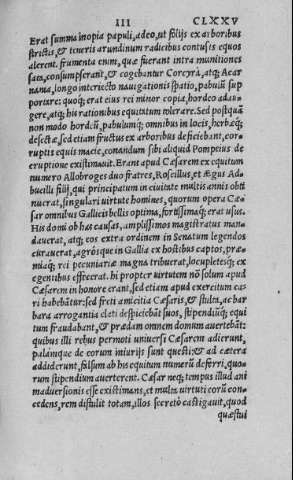 III CLXXV
Erat summa inopia pabuli, adeo, ut foliis ex arboribus
strictis, & teneris arundinum radicibus contusis equos
alerent. frumenta enim, quæ fuerant intra munitiones
sata, consumpserant, & cogebantur Corcyra, atq; Acar
nania, longo interiecto nauigationis spatio, pabulū sup
portare; quoq; erat eius rei minor copia, hordeo adau-
gere, atq; his rationibus equitatum tolerare. Sed postquā
non modo hordeū, pabulumq; omnibus in locis, herbæq;
desectæ, sed etiam fructus ex arboribus deficiebant, cor
ruptis equis macie, conandum sibi aliquid Pompeius de
eruptione existimauit. Erant apud Cæsarem ex equitum
numero Allobroges duo fratres, Roscillus, et Ægus Ad
bucilli filii, qui principatum in ciuitate multis annis obti
nuerat, singulari uirtute homines, quorum opera Cæ
sar omnibus Gallicis bellis optima, fortissimaq; erat usus.
His domi ob has causas, amplissimos magistratus man
dauerat, atq; eos extra ordinem in Senatum legendos
curauerat, agrosque in Gallia ex hostibus captos, præ
miaq; rei pecuniariæ magna tribuerat, locupletesq; ex
egentibus effecerat. hi propter uirtutem nō solum apud
Cæsarem in honore erant, sed etiam apud exercitum ca
ri habebātur: sed freti amicitia Cæsaris, & stulta, ac bar
bara arrogantia elati despiciebāt suos, stipendiūq; equi
tum fraudabant, & prædam omnem domum auertebāt:
quibus illi rebus permoti uniuersi Cæsarem adierunt,
palamque de eorum iniuriis sunt questi; & ad cætera
addiderunt, falsum ab his equitum numerū deferri, quo-
rum stipendium auerterent. Cæsar neq; tempus illud ani
maduersionis esse existimans, et multa uirtuti eorū con-
cedens, rem distulit totam, illos secreto castigauit, quod
quæstui